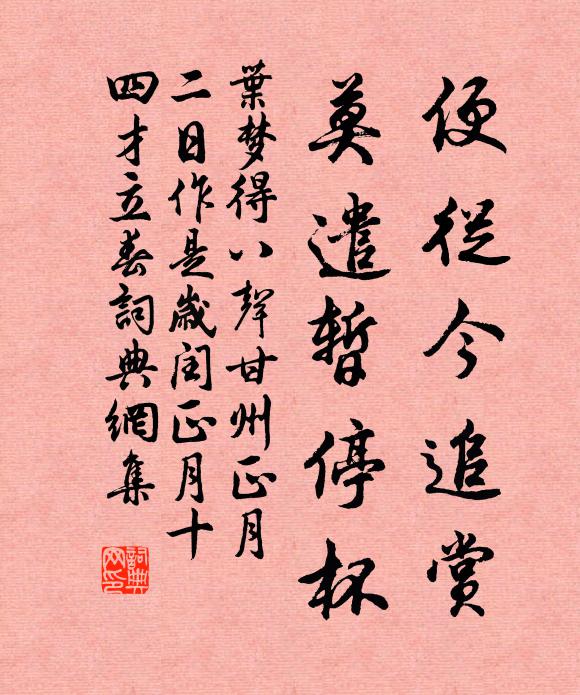 便從今追賞
莫遣暫停杯
葉梦得八聲甘州正月
二日作是歲閏正月十
四才立春詞典網集
詞典网印